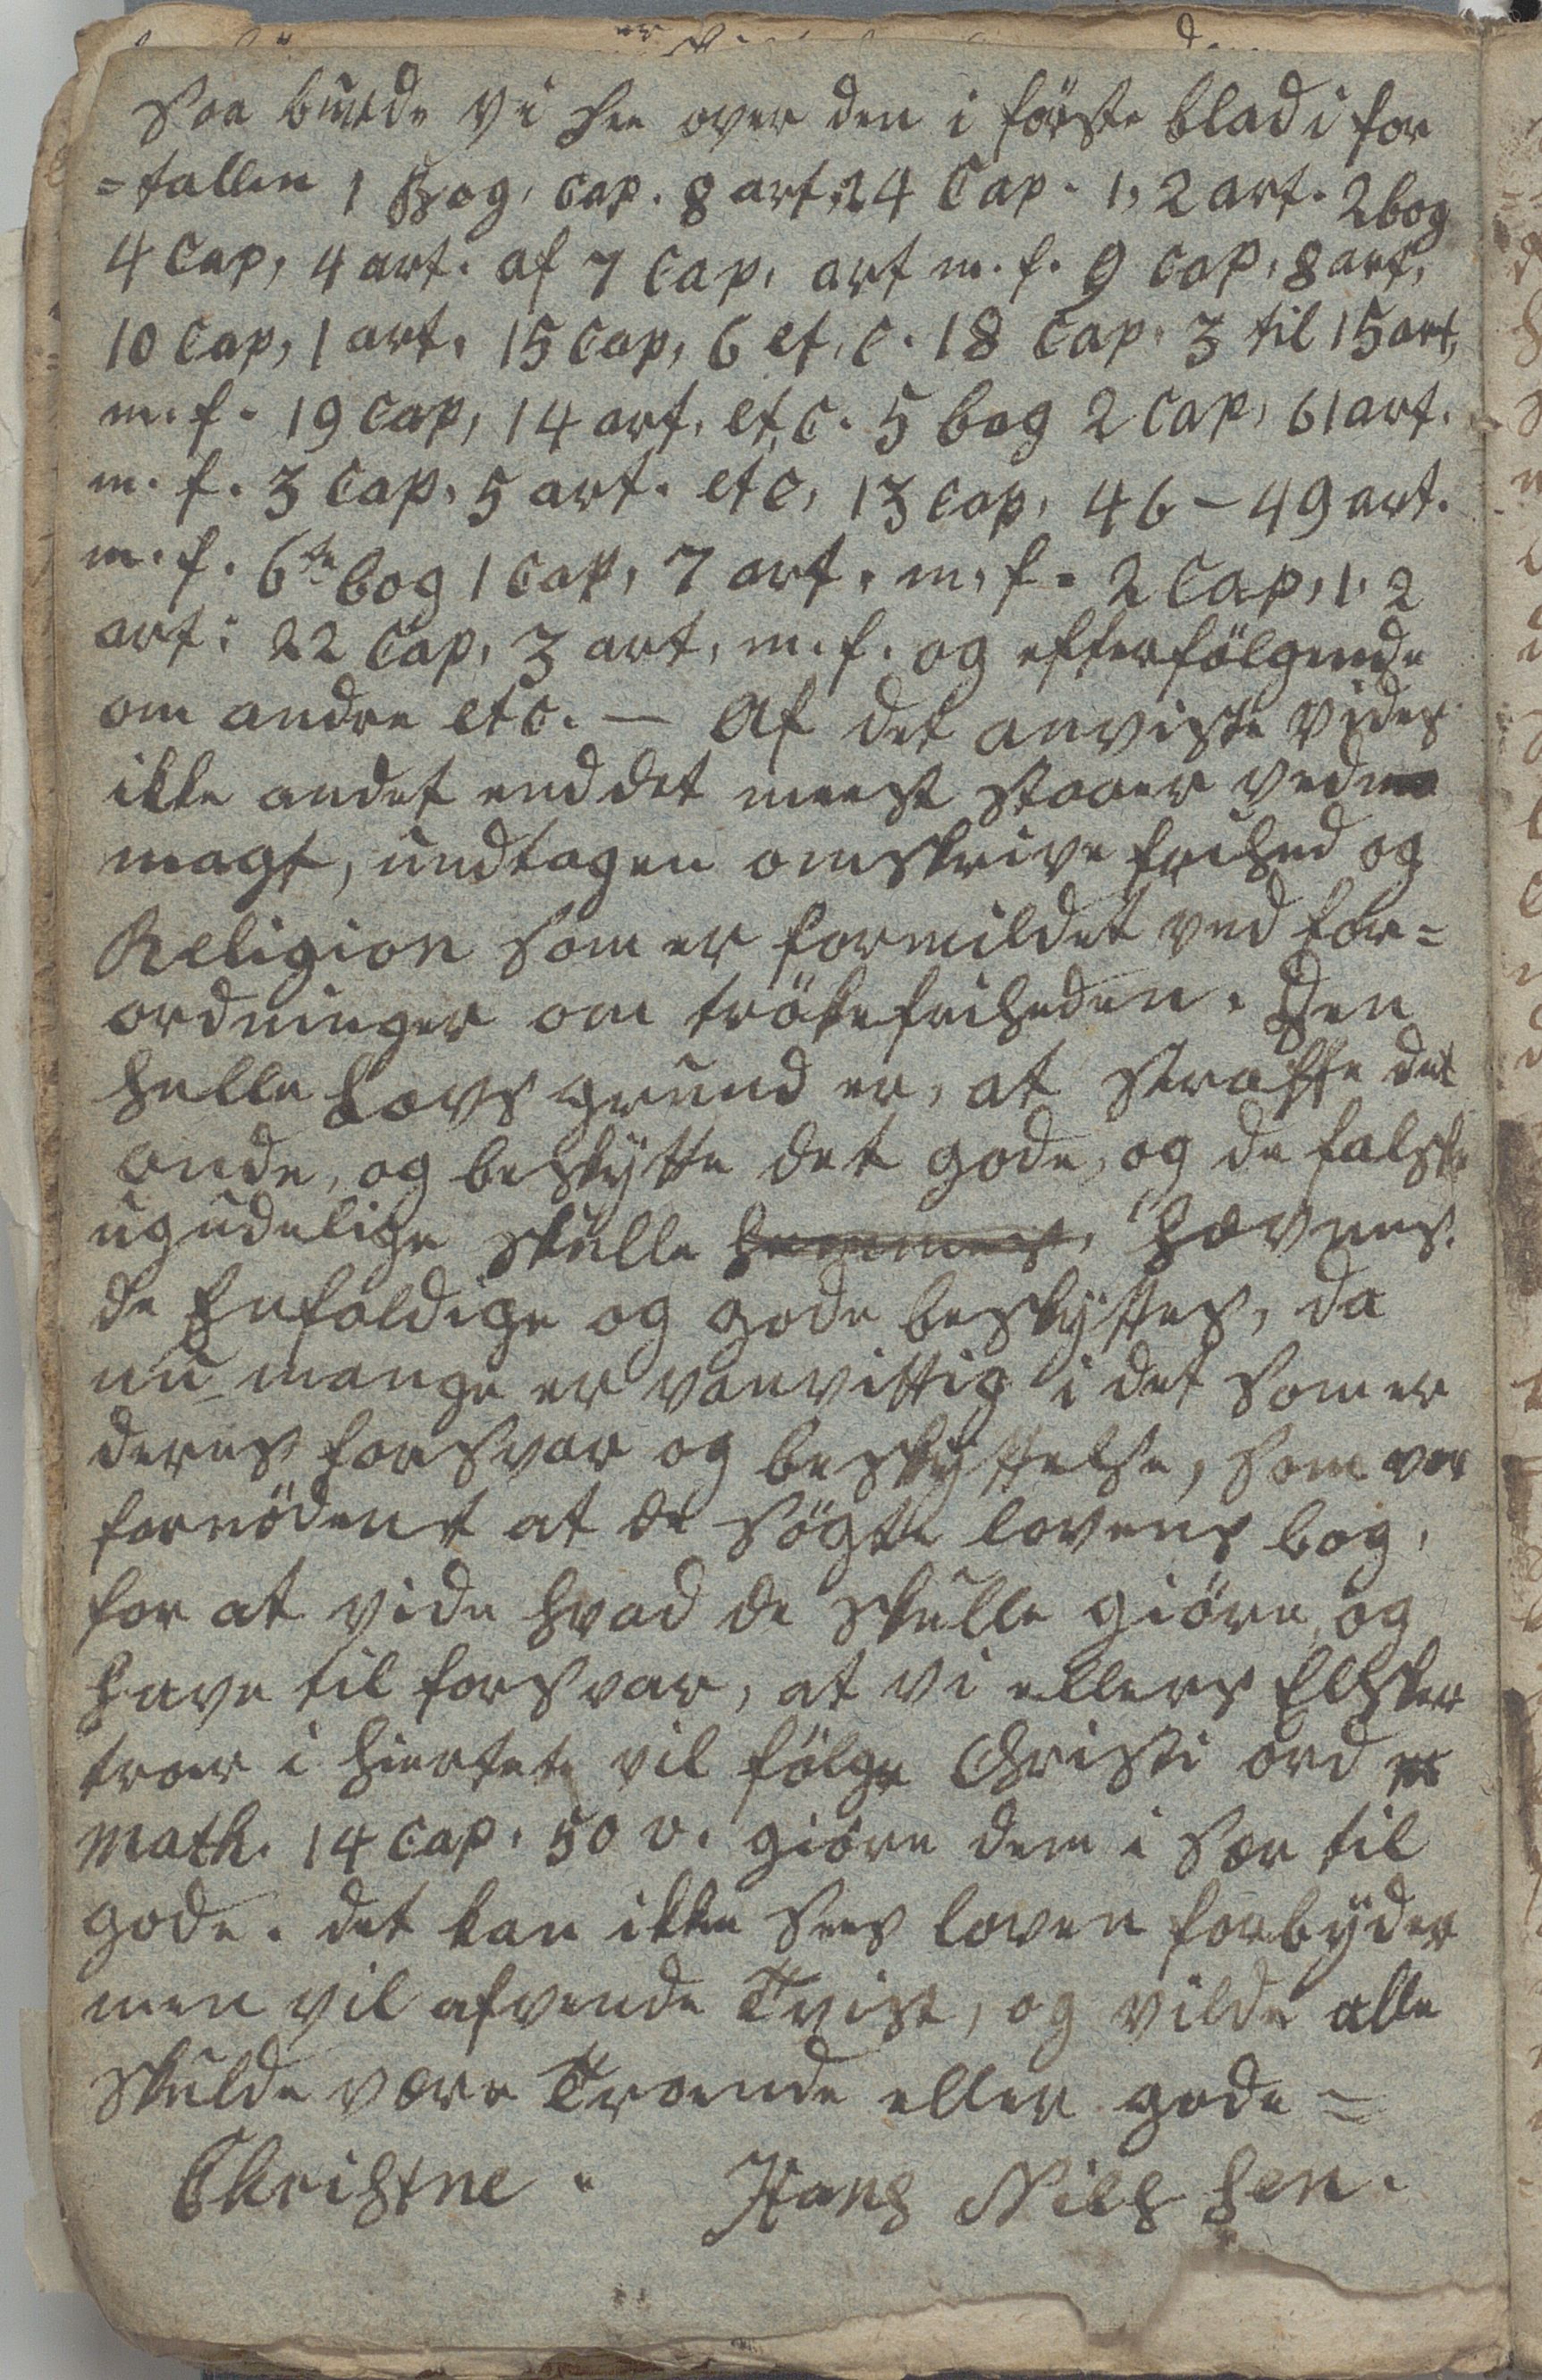 Saa burde vi see over den i förste blad i for
=tallen 1 Bog, Cap. 8 art, 24 Cap. 1, 2 art. 2 bog
4 Cap, 4 art. af 7 Cap, art m. f. 9 Cap, 8 art,
10 Cap, 1 art, 15 Cap, 6 et, c. 18 Cap. 3 til 15 art,
m. f. 19 Cap, 14 art, et, c. 5 bog 2 Cap, 61 art.
m. f. 3 Cap, 5 art. etc, 13 Cap, 46 - 49 art.
m. f. 6te bog 1 Cap, 7 art, m, f. 2 Cap, 1, 2
art: 22 Cap, 3 art, m. f. og efterfölgende
om andre etc. — Af det anviste vides
ikke andet end det meest staaer ved
magt, undtagen omskrive frihed og
Religion som er formildet ved for=
ordninger om trökefriheden. Den
heele Lovs grund er, at straffe det
onde, og beskytte det gode, og de falske
ugudelige skulle hemmes, hævnes.
de Enfoldige og gode beskyttes, da
nu mange er vanvittig i det som er
deres forsvar og beskyttelse, som var
fornödent at de sögte lovens bog,
for at vide hvad de skulle giöre, og
have til forsvar, at vi ellers Elsker
troer i hiertet vil fölge Christi ord
Math. 14 Cap. 50 v. giöre dem i sær til
gode. det kan ikke sees loven forbyder
men vil afvende Tvist, og vilde alle
skulde være Troende eller gode =
Christne. Hans Nielssen.